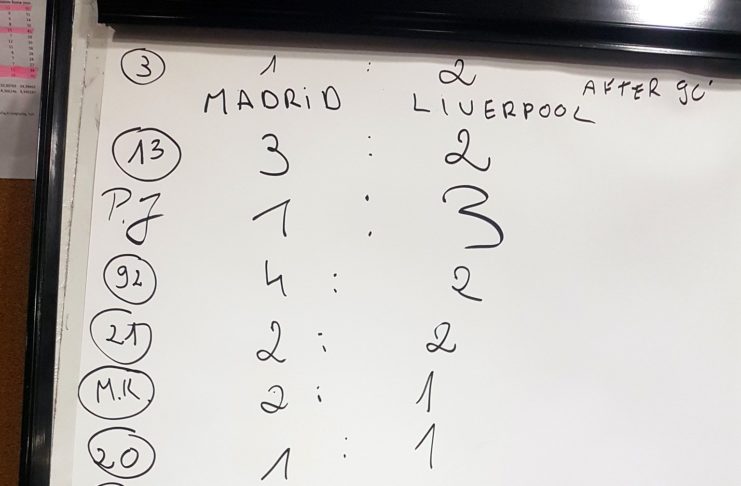 3 1 : 2
MADRID LIVERPOOL AFTER 90'
13 3 : 2
P.J 1 : 3
92 4 : 2
21 2 : 2
M.K. 2 : 1
20 1 : 1